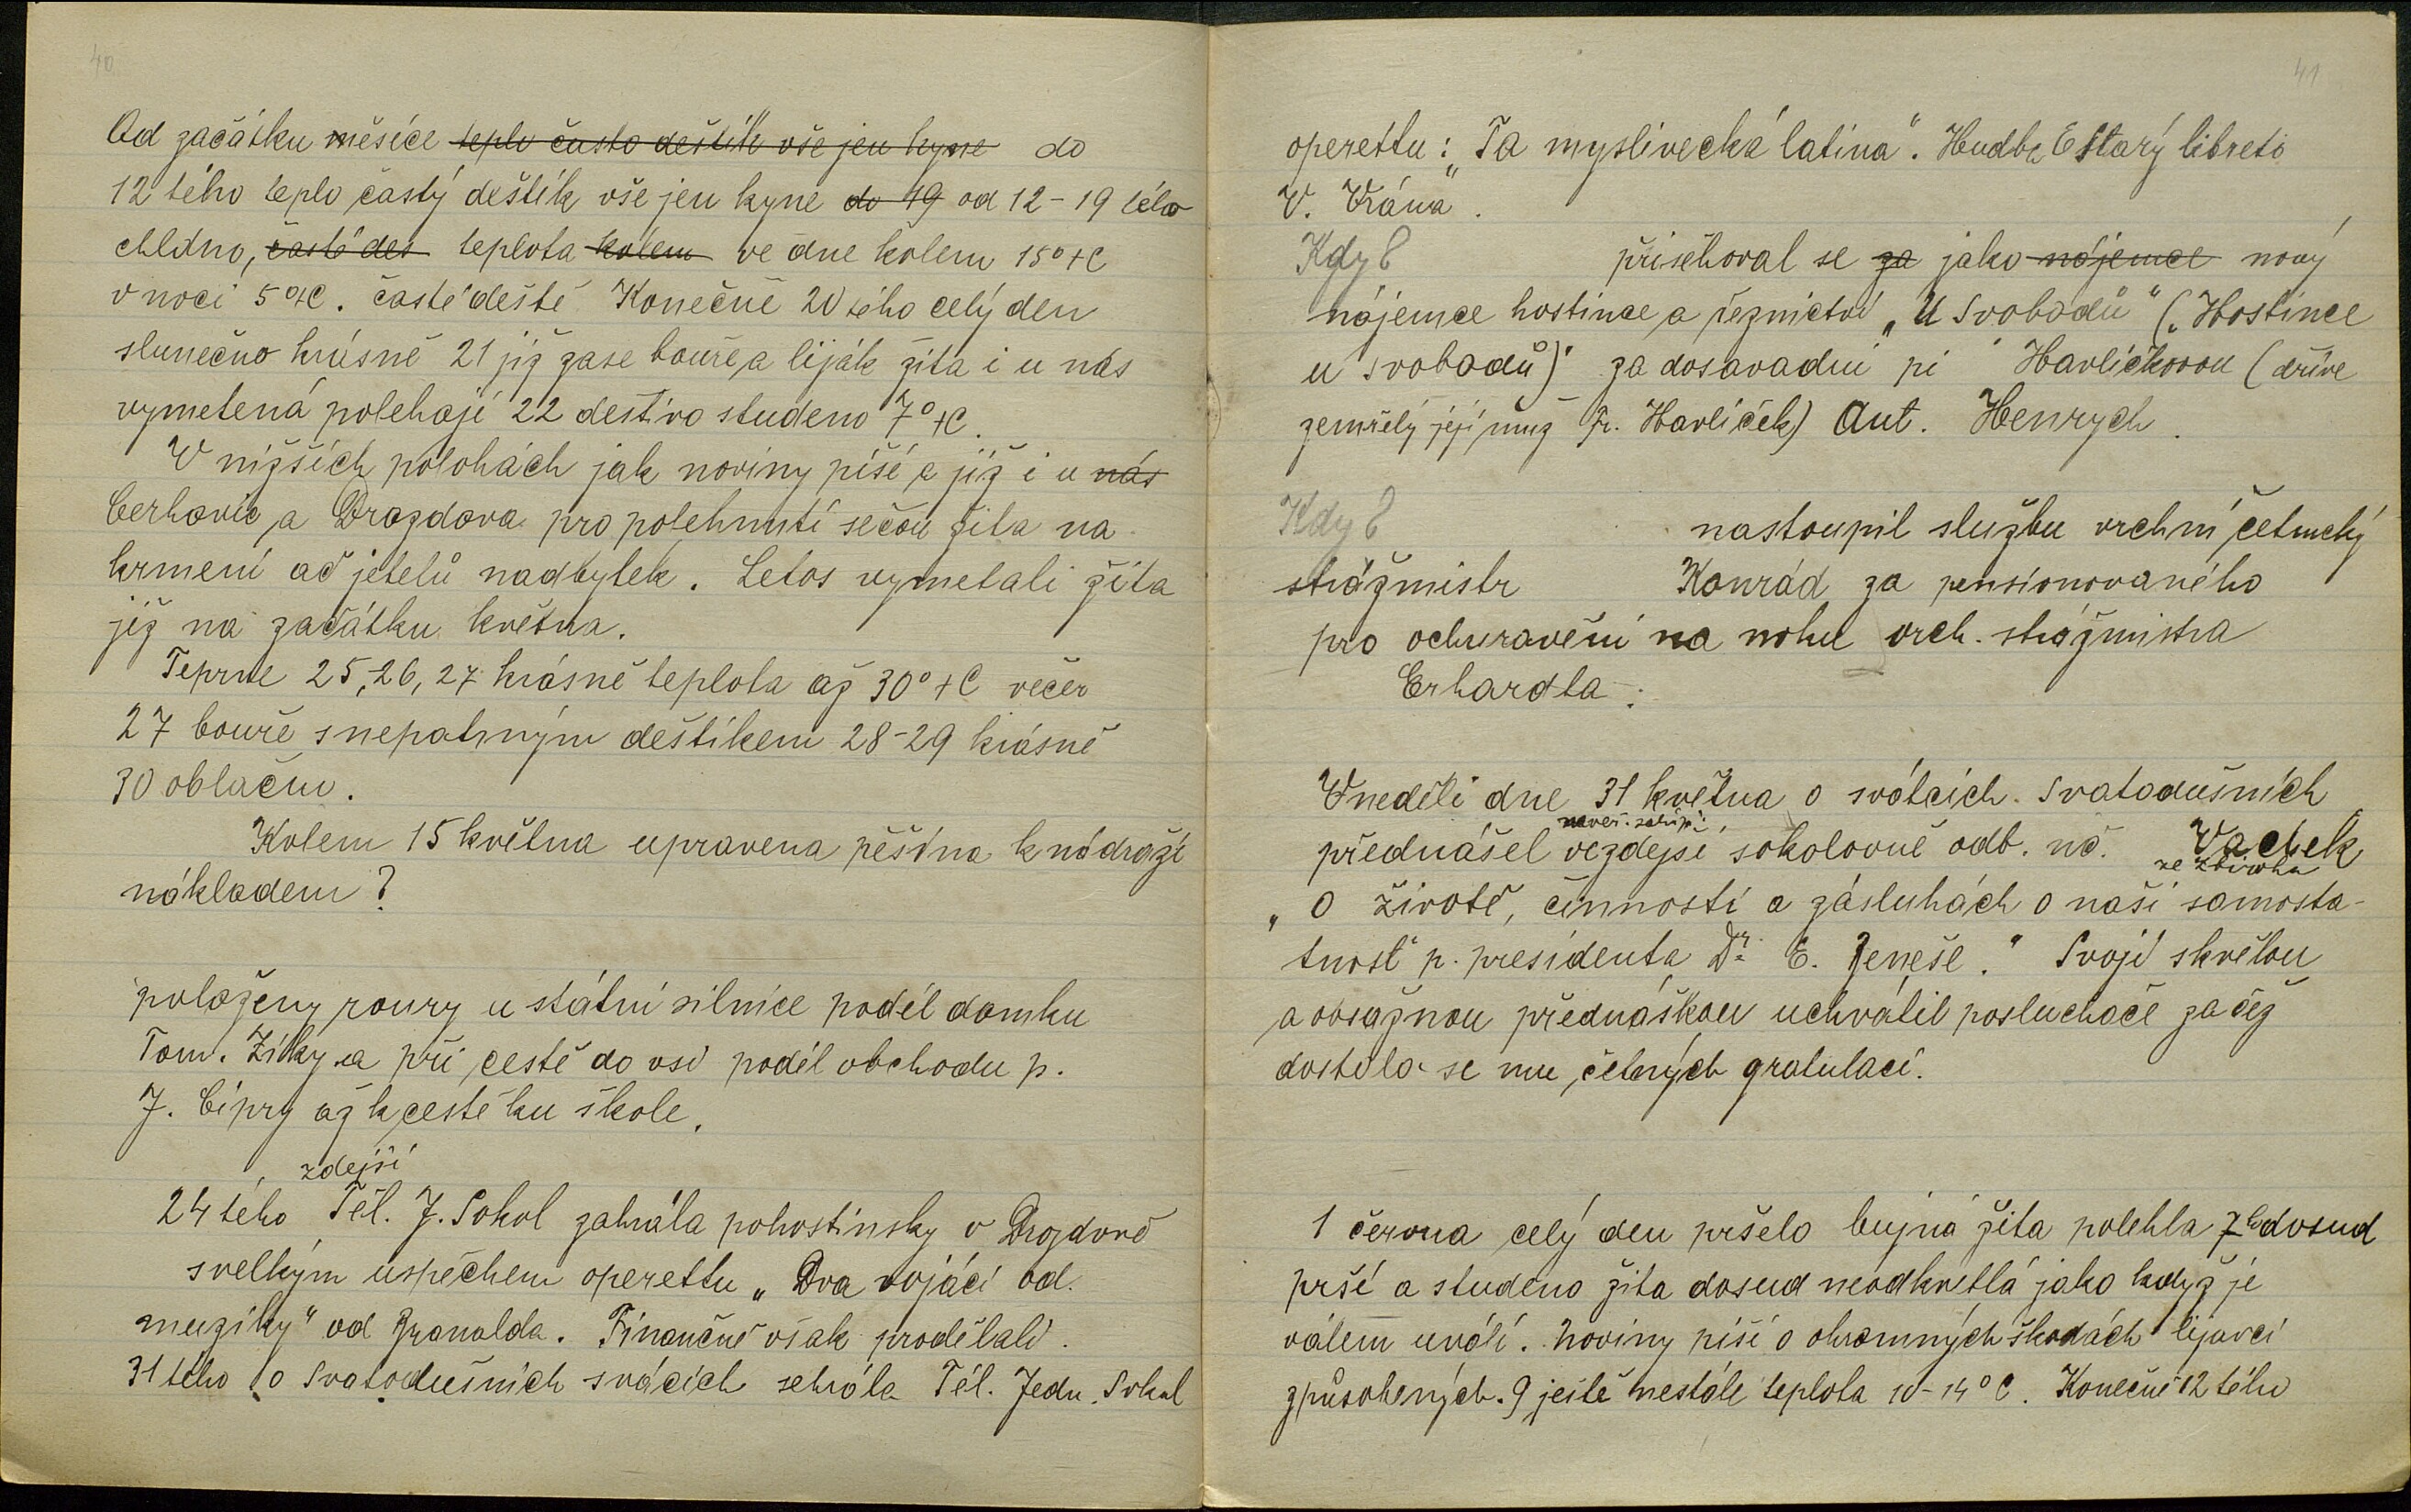 40
Od začátku měsíce teplo často deštík vše jen kyne do
12 tého teplo častý deštík vše jen kyne do 19 od 12-19 tého
chladno, časté deš teplota kolem ve dne kolem 15°+C
v noci 5°+C. časté deště Konečně 20 tého celý den
slunečno krásně 21 již zase bouře a liják žita i u nás
vymetená polehají 22 deštivo studeno 7°+C.
V nižších polohách jak noviny píší a již i u nás
Cerhovic a Drozdova pro polehnutí sečou žita na
krmení ač jetelů nadbytek. Letos vymetali žita
již na začátku května.
Teprve 25, 26, 27 krásně teplota až 30°+C večer
27 bouře s nepatrným deštíkem 28-29 krásně
30 oblačno.
Kolem 15 května upravena pěšina k nádraží
nákladem?
položeny roury u státní silnice podél domku
Tom. Zítky a při cestě do vsi podél obchodu p.
J. Cipry až k cestě ku škole.
zdejší
24 tého Těl. J. Sokol zahrála pohostinsky v Drozdově
s velkým úspěchem operettu „Dva vojáci od
muziky" od Branalda. Finančně však prodělali.
31 tého o Svatodušních svácích sehrála Těl. Jedn. Sokol
41
operettu: „Ta myslivecká latina". Hudba E Starý libreto
V. Vrána.
Kdy?
přisěhoval se za jako nájemce nový
nájemce hostince a řeznictví „U Svobodů" („Hostince
u Svobodů)" za dosavadní pí Havlíčkovou (dříve
zemřelý její muž Fr. Havlíček) Ant. Henrych.
Kdy?
nastoupil službu vrchní četnický
strážmistr Konrád za pensionovaného
pro ochuravění na nohu vrch. strážmistra
Erhardta.
V neděli dne 31 května o svátcích Svatodušních
přednášel ve zdejší sokolovně odb. uč. Vachek
ze Zbiroha
„O životě, činnosti a zásluhách o naši samosta-
tnost p. presidenta Dr E. Beneše." Svojí skvělou
a obsažnou přednáškou uchvátil posluchače začež
dostalo se mu četných gratulací.
1 června celý den pršelo bujná žita polehla 7ho dosud
prší a studeno žita dosud neodkvetlá jako když je
válem uválí. Noviny píší o ohromných škodách lijavci
způsobených. 9 ještě nestále teplota 10-14°C. Konečně 12 tého